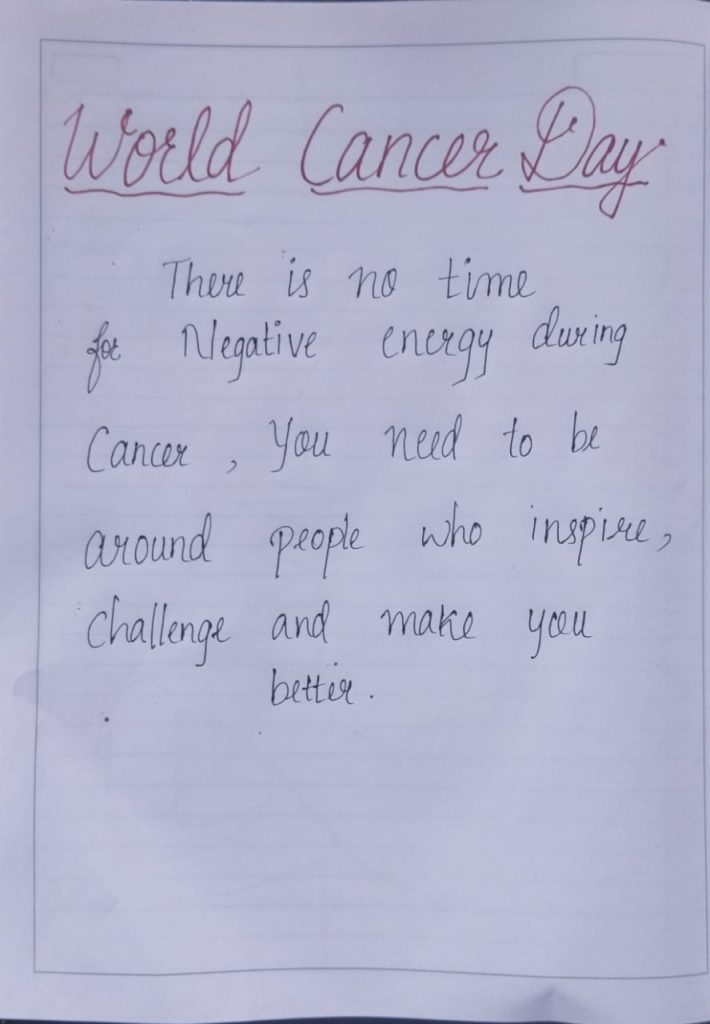 World Cancer Day
There is no time
for Negative energy during
Cancer, You need to be
around people who inspire,
challenge and make you
better.